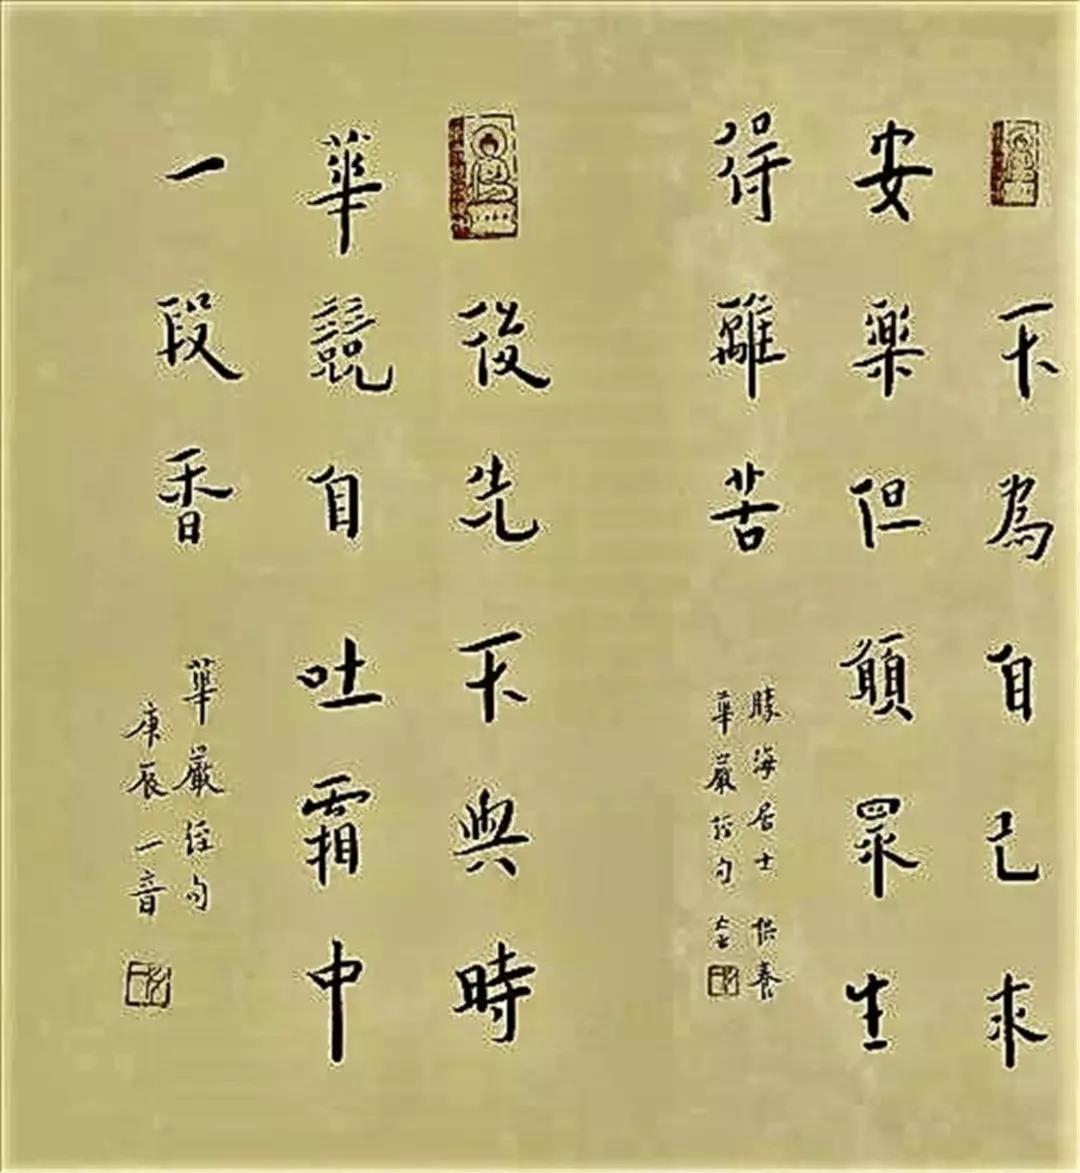 不為自己求
安樂但願眾生
得離苦
勝海居士 供養
華嚴經句
後先不與時
華競自吐霜中
一段香
華嚴經句
庚辰一音